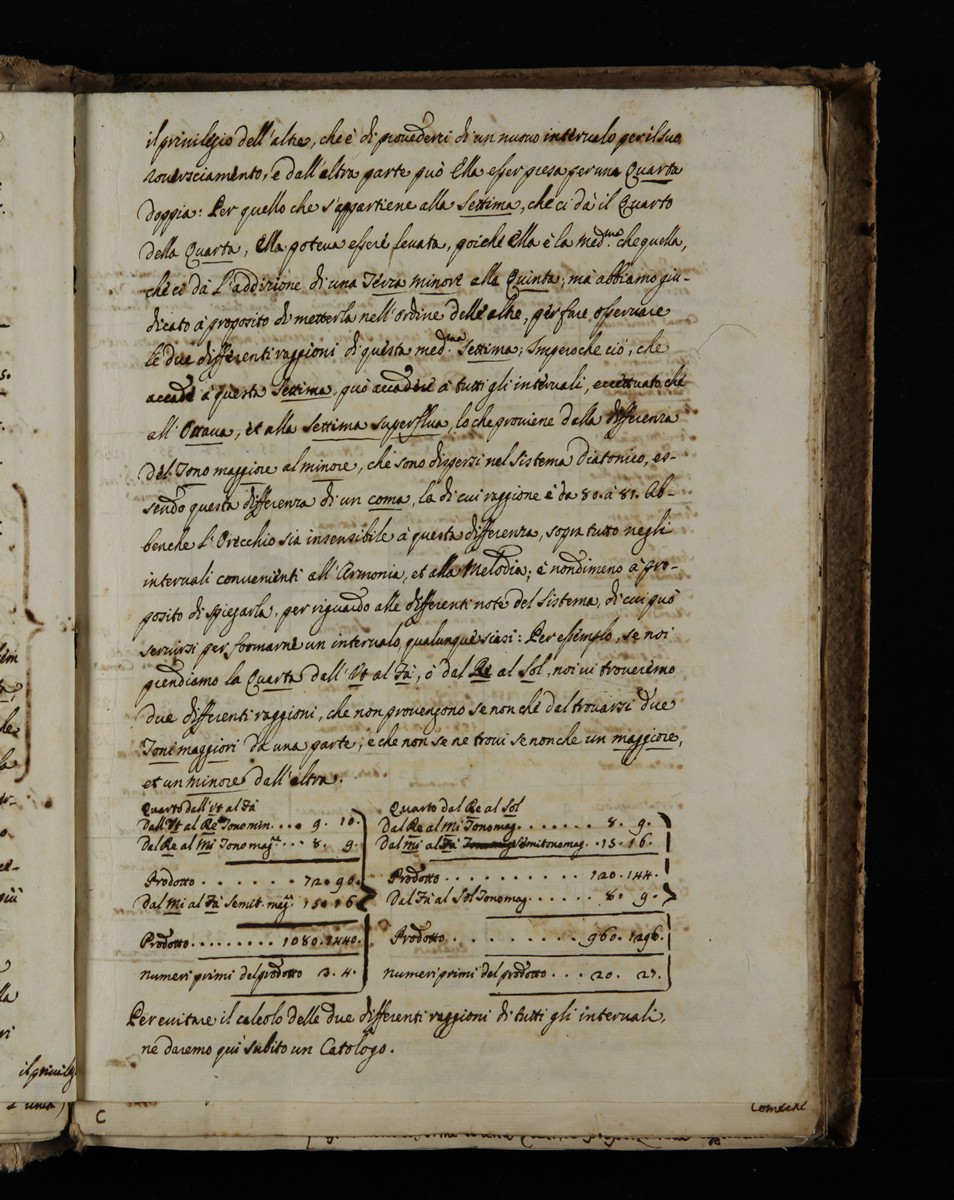 il privilegio dell'altre, che è di provederci di un nuovo intervalo per il suo
rovesciamento, e dall'altra parte può Ella esser presa per una Quarta
doppia: Per quello che s'appartiene alla Settima, che ci dà il Quarto
della Quarta, Ella poteva essere levata, poiche Ella è la med.ma che quella,
che ci dà l'addizione di una Terza minore alla Quinta; ma abbiamo giu-
dicato à proposito di metterla nell'ordine delle altre, per fare osservare
le due differenti raggioni di questa med.ma Settima; Imperoche ciò, che
accade à questa Settima, può accadere à tutti gli intervali, eccettuato che
all'Ottava, et alla Settima superflua, lo che proviene dalla differenza
del Tono maggiore al minore, che sono dispersi nel sistema diatonico, es-
sendo questa differenza di un coma, la di cui raggione è da 80. à 81. Ab-
benche l'Orecchio sia insensibile à questa differenza, sopra tutto negli
intervali convenienti all'Armonia, et alla Melodia; è nondimeno à pro-
posito di spiegarla, per riguardo alle differenti note del sistema, di cui può
servirsi per formarne un intervalo qualunque siasi: Per essimplo, se noi
prendiamo la Quarta dall'Ut al Fà, ò dal Re al Sol, noi vi troveremo
due differenti raggioni, che non provengono se non che dal trovarsi due
Toni maggiori da una parte, e che non se ne trovi se non che un maggiore,
et un minore dall'altra.
Quarto dall'Ut al Fà
Dall'Ut al Re Tono min. . . . 9. 10.
Dal Re al Mi Tono mag.re . . . 8. 9.
Prodotto . . . . . . . 72. 90.
Dal Mi al Fà Semit. mag. 15. 16
Prodotto . . . . . . . . 1080. 1440.
Numeri primi del prodotto 3. 4.
Quarto dal Re al Sol
Dal Re al Mi Tono mag. . . . . . . 8. 9.
Dal Mi al Fà semitono mag. . 15. 16.
Prodotto . . . . . . . . . 120. 144.
Dal Fà al Sol Tono mag. . . . . . . 8. 9.
Prodotto . . . . . . . . 960. 1296.
Numeri primi del prodotto . . . 20. 27.
Per evitare il calcolo delle due differenti raggioni di tutti gli intervali,
ne daremo quì subito un Catologo.
C